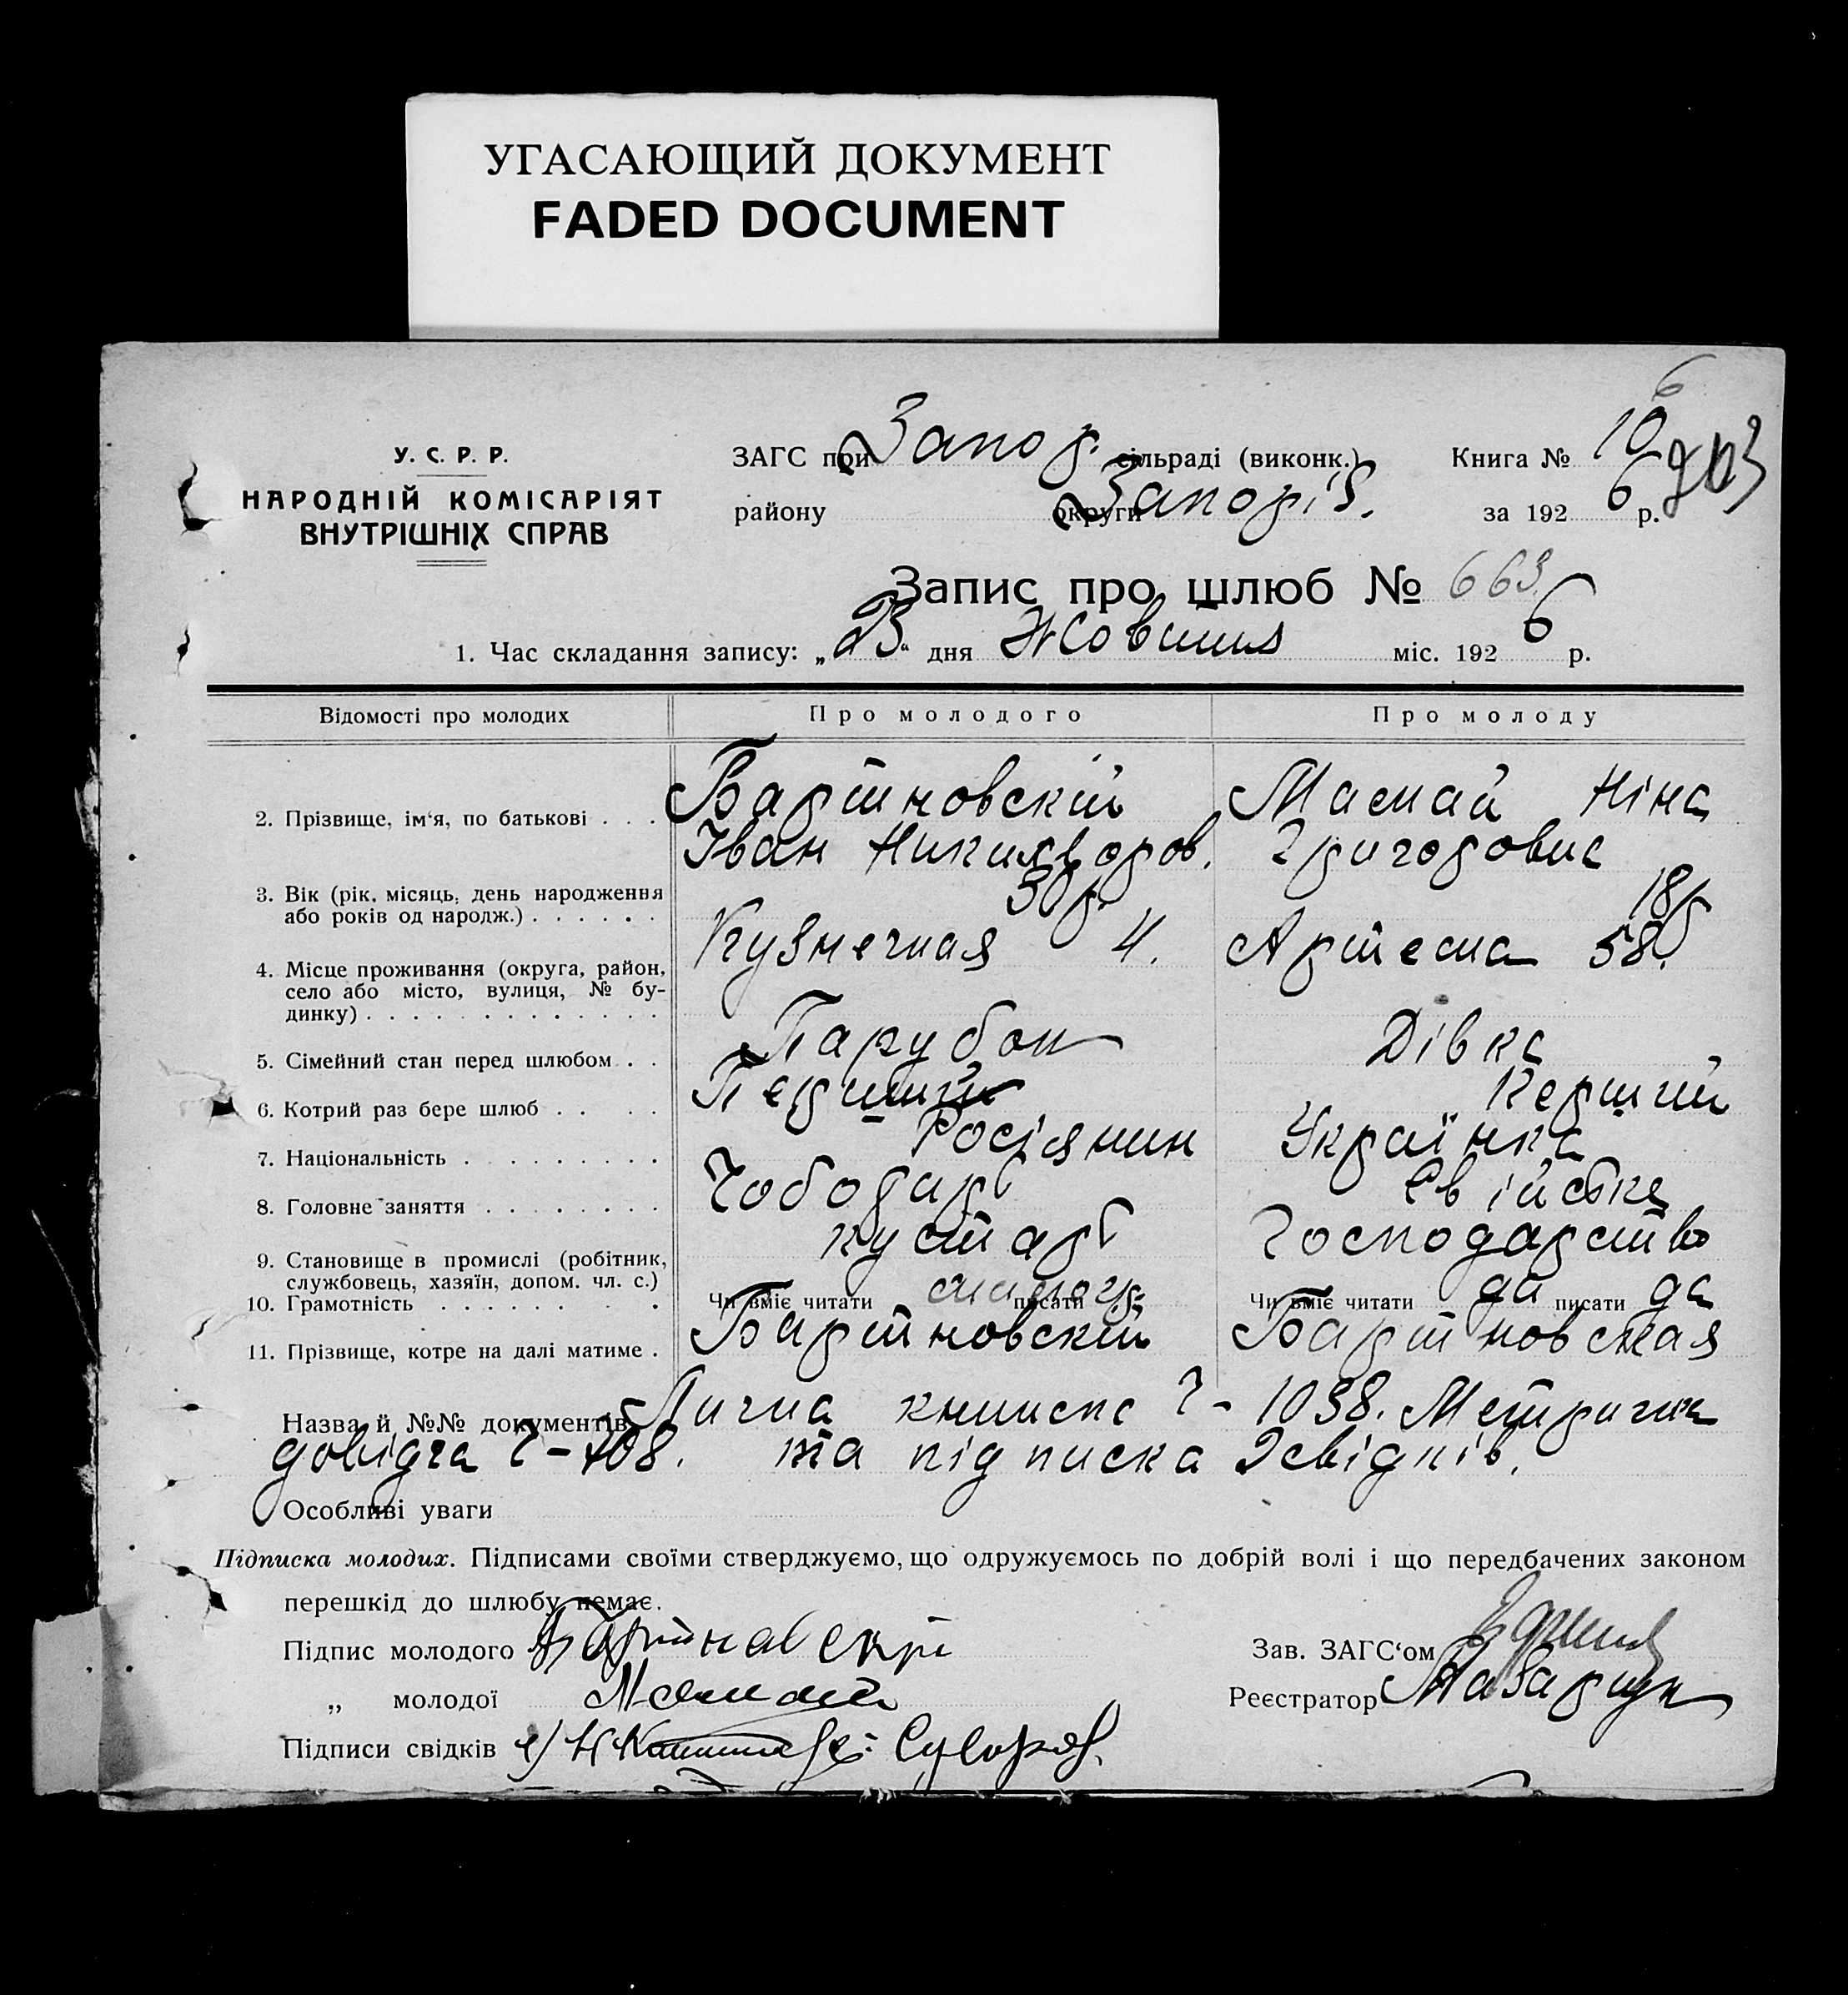 УГАСАЮЩИЙ ДОКУМЕНТ
FADED DOCUMENT
У. С. Р. Р.
НАРОДНІЙ КОМІСАРІЯТ
ВНУТРІШНІХ СПРАВ
ЗАГС при Запор. сільраді (виконк.) Книга № 10
району округи Запоріз. за 192 6 р.
Запис про шлюб № 663
1. Час складання запису: „ “ дня Жовтня міс. 192 6 р.
Відомості про молодих Про молодого Про молоду
2. Прізвище, ім‘я, по батькові . . . Бартновскій Мамай Ніна
Іван Никифоров. Григоровна
3. Вік (рік, місяць, день народження 30 р. 18 р
або років од народж.) . . . . . .
4. Місце проживання (округа, район, Кузнечная 4. Артема 58.
село або місто, вулиця, № бу-
динку) . . . . . . . . . . . . .
5. Сімейний стан перед шлюбом . . Парубок Дівка
6. Котрий раз бере шлюб . . . . Перший Перший
7. Національність . . . . . . . . . Росіянин Українка
8. Головне заняття . . . . . . . . Чоботарь
9. Становище в промислі (робітник, кустарь Господарство
службовець, хазяїн, допом. чл. с.)
10. Грамотність . . . . . . . Чи вміє читати писати Чи вміє читати да писати да
11. Прізвище, котре на далі матиме . Бартновскій Бартновская
Назва й №№ документів Лична книжка Ч- 1038. Метрична
довідка Ч-708. та підписка 2 свідків.
Особливі уваги
Підписка молодих. Підписами своїми стверджуємо, що одружуємось по добрій волі і що передбачених законом
перешкід до шлюбу немає.
Підпис молодого Зав. ЗАГС‘ом
„ молодої Мамай Реєстратор
Підписи свідків